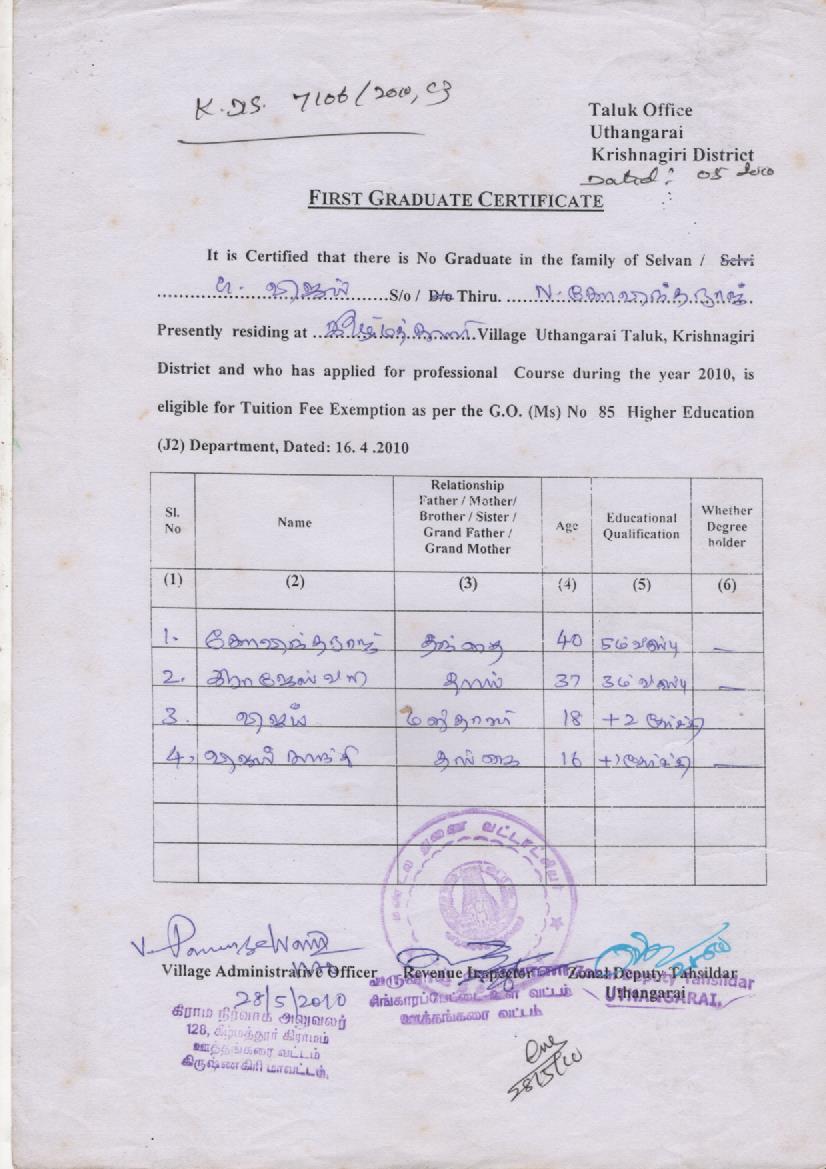 K.Dis. 7106/2010, C3
Taluk Office
Uthangarai
Krishnagiri District
Dated: 05 2010
FIRST GRADUATE CERTIFICATE
It is Certified that there is No Graduate in the family of Selvan / Selvi
விஜய் S/o / D/o Thiru. N. கோவிந்தராஜ்
Presently residing at கீழ்மத்தூர் Village Uthangarai Taluk, Krishnagiri
District and who has applied for professional Course during the year 2010, is
eligible for Tuition Fee Exemption as per the G.O. (Ms) No 85 Higher Education
(J2) Department, Dated: 16. 4 .2010
Sl. No Name Relationship Father / Mother/ Brother / Sister / Grand Father / Grand Mother Age Educational Qualification Whether Degree holder
(1) (2) (3) (4) (5) (6)
1. கோவிந்தராஜ் தந்தை 40 5ம் வகுப்பு —
2. தாய் 37 3ம் வகுப்பு —
3. விஜய் 18 +2 தேர்ச்சி
4. தங்கை 16 +1 தேர்ச்சி —
Village Administrative Officer Revenue Inspector Zonal Deputy Tahsildar
Uthangarai
28/5/2010
கிராம நிர்வாக அலுவலர்
128, கீழ்மத்தூர் கிராமம்
ஊத்தங்கரை வட்டம்
கிருஷ்ணகிரி மாவட்டம்.
சிங்காரப்பேட்டை உள் வட்டம்
ஊத்தங்கரை வட்டம்
Deputy Tahsildar
UTHANGARAI.
28/5/10